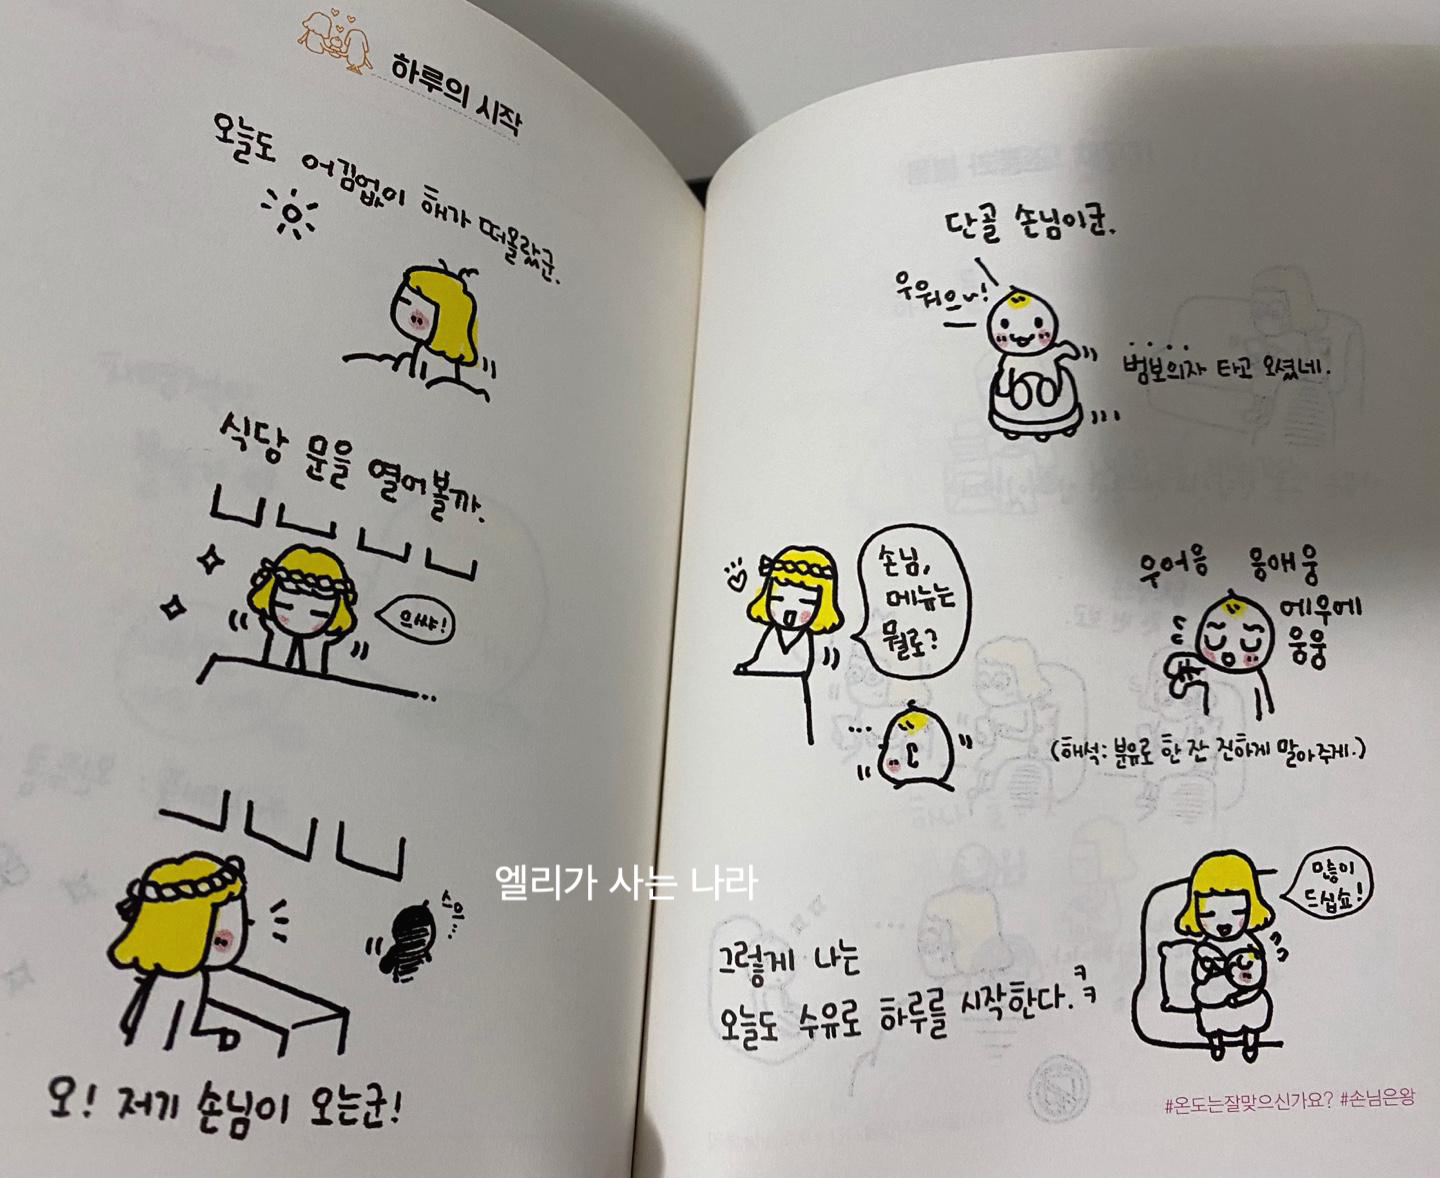 하루의 시작
오늘도 어김없이 해가 떠올랐군.
식당 문을 열어볼까.
으쌰!
스윽
오! 저기 손님이 오는군!
단골 손님이군.
우워으~!
범보의자 타고 오셨네.
손님,
메뉴는
뭘로?
우어응 응애웅
에우에
웅웅
(해석: 분유로 한 잔 진하게 말아주게.)
많이
드십쇼!
그렇게 나는
오늘도 수유로 하루를 시작한다.ㅋㅋ
#온도는잘맞으신가요? #손님은왕
엘리가 사는 나라